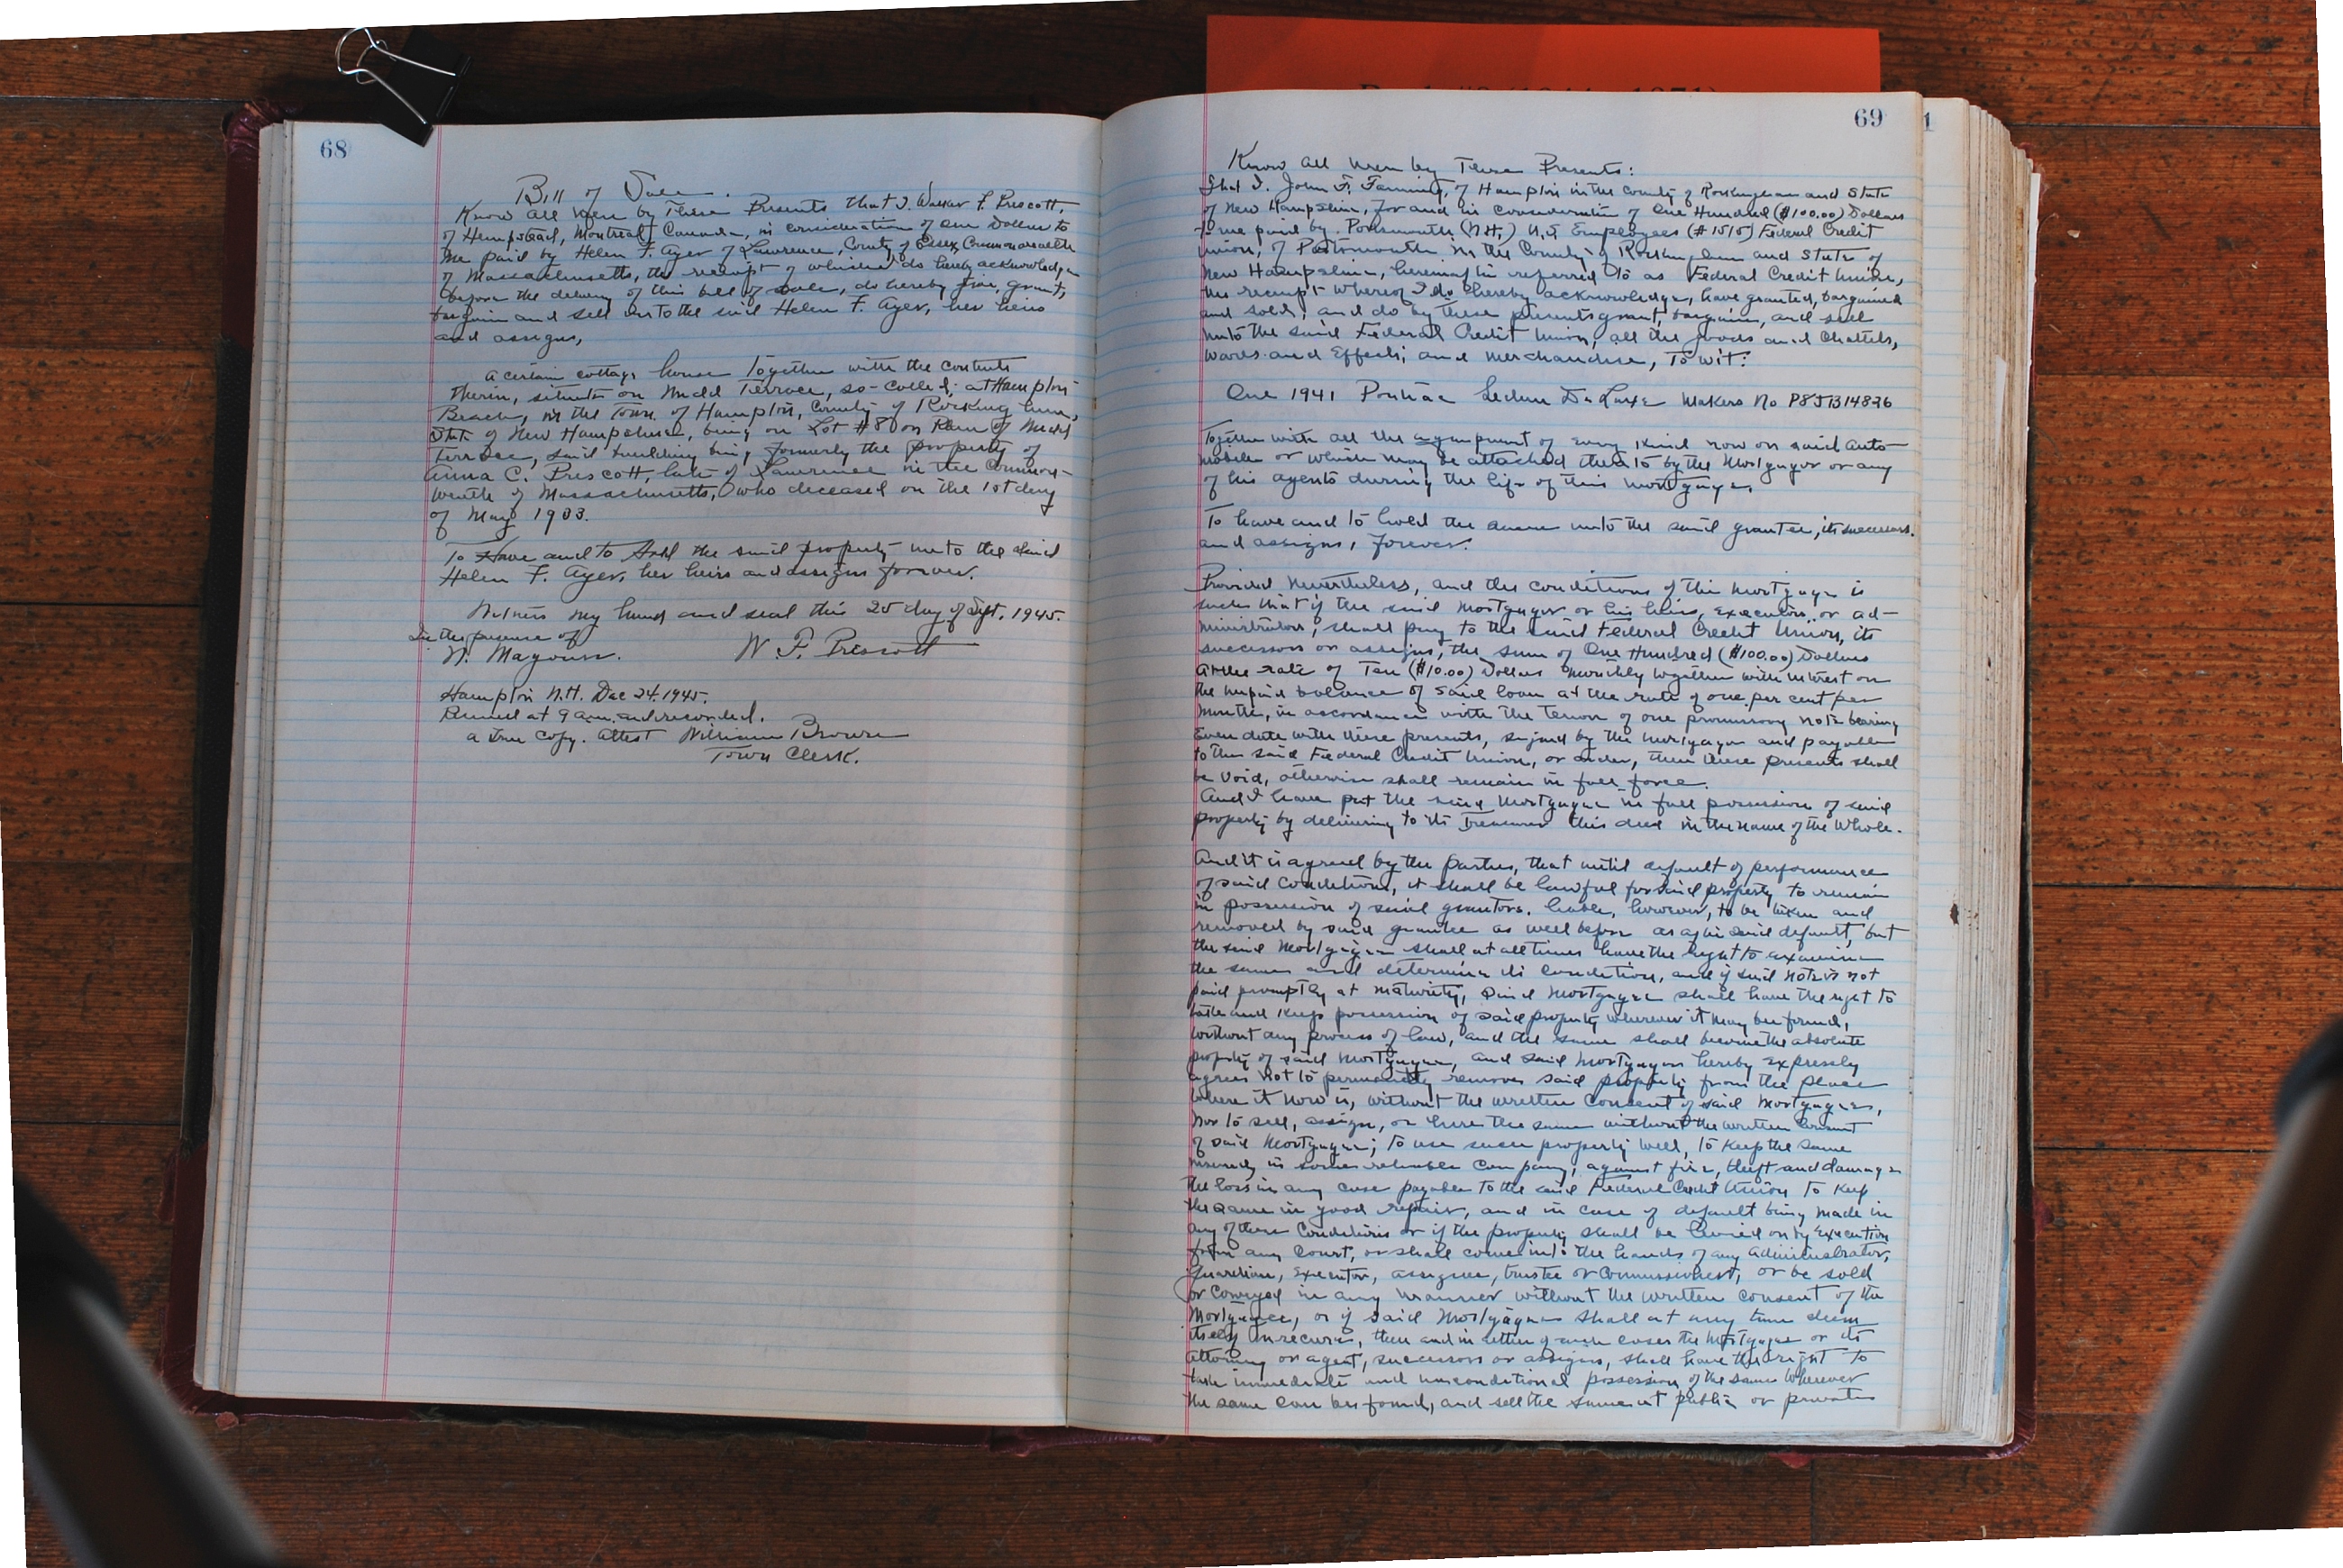 68
Bill of Sale.
Know all Men by These Presents that I. Walker F. Prescott,
of Hempstead, Montreal, Canada, in consideration of one Dollar to
me paid by Helen F. Ayer of Lawrence, County of Essex, Commonwealth
of Massachusetts, the receipt of which I do hereby acknowledge
before the delivery of this bill of sale, do hereby give, grant,
bargain and sell unto the said Helen F. Ayer, her heirs
and assigns,
a certain cottage house Together with the contents
therin, situate on Mudd Terrace, so-called; at Hampton
Beach, in the Town of Hampton, County of Rockingham,
State of New Hampshire, being on Lot #8 on Plan of Mudd
Terrace, said building being formerly the property of
Anna C. Prescott, late of Lawrence in the Common-
wealth of Massachusetts, who deceased on the 1st day
of May 1933.
To Have and to Hold the said property unto the said
Helen F. Ayer, her heirs and assigns forever.
Witness my hand and seal this 25 day of Sept. 1945.
In the presence of
N. Mayour. W. F. Prescott
Hampton N.H. Dec 24. 1945.
Received at 9 a.m. and recorded.
a true Copy. Attest William Brown
Town Clerk.
69
1
Know all Men by These Presents:
That I. John F. Fanning, of Hampton in the County of Rockingham and State
of New Hampshire, for and in consideration of One Hundred ($100.00) Dollars
to me paid by. Portsmouth (N.H.) U,S Employees (#1515) Federal Credit
Union, of Portsmouth in the County of Rockingham and State of
New Hampshire, hereinafter referred to as Federal Credit Union,
the receipt whereof I do hereby acknowledge, have granted, bargained
and sold, and do by these presents grant, bargain, and sell
unto the said Federal Credit Union, all the goods and Chattels,
wares and Effects, and merchandise, To wit:
One 1941 Pontiac Sedan DeLuxe Makers No P8JB14836
Together with all the equipment of every kind now on said Auto-
mobile or which may be attached thereto by the Mortgagor or any
of his agents during the life of this mortgage.
To have and to hold the same unto the said grantee, its successors.
and assigns, forever.
Provided Nevertheless, and the conditions of this mortgage is
such that if the said Mortgagor or his heirs, executors, or ad-
ministrators, shall pay to the said Federal Credit Union, its
successors or assigns, the sum of One Hundred ($100.00) Dollars
At the rate of Ten ($10.00) Dollars monthly together with interest on
the unpaid balance of said loan at the rate of one per cent per
month, in accordance with the tenor of one promissory note bearing
Even date with these presents, signed by the mortgagor and payable
to the said Federal Credit Union, or order, then these presents shall
be void, otherwise shall remain in full force.
And I have put the said Mortgagee in full possession of said
property by delivering to its Treasurer this deed in the name of the Whole.
And it is agreed by the parties, that until default of performance
of said Conditions, it shall be lawful for said property to remain
in possession of said grantors. liable, however, to be taken and
removed by said grantee as well before as after said default, but
the said Mortgagee shall at all times have the right to examine
the same and determine its condition, and if said note is not
paid promptly at maturity, said Mortgagee shall have the right to
take and keep possession of said property wherever it may be found,
without any process of law, and the same shall become the absolute
property of said Mortgagee, and said Mortgagor hereby expressly
agrees not to permanently remove said property from the place
where it now is, without the written Consent of said Mortgagee,
nor to sell, assign, or hire the same without the written Consent
of said Mortgagee; to use such property well, to keep the same
insured, in some reliable Company, against fire, theft and damage
the loss in any case payable to the said Federal Credit Union to keep
the same in good repair, and in case of default being made in
any of these Conditions or if the property shall be levied on by Execution
from any Court, or shall come into the hands of any Administrator,
Guardian, Executor, assignee, trustee or Commissioners, or be sold
or Conveyed in any manner without the written consent of the
Mortgagee, or if said Mortgagee shall at any time deem
itself insecure, then and in either of such cases the Mortgagee or its
attorney or agent, successors or assigns, shall have the right to
take immediate and unconditional possession of the same wherever
the same can be found, and sell the same at public or private